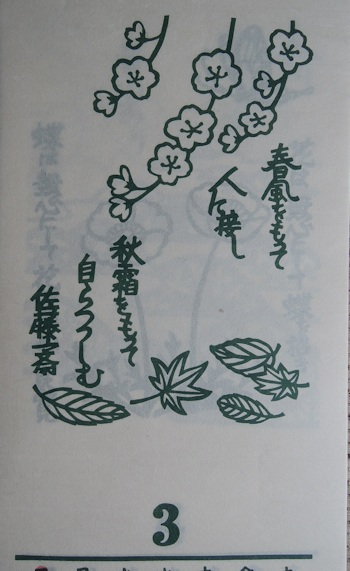 春風をもって
人に接し
秋霜をもって
自らつつしむ
佐藤一斎
3